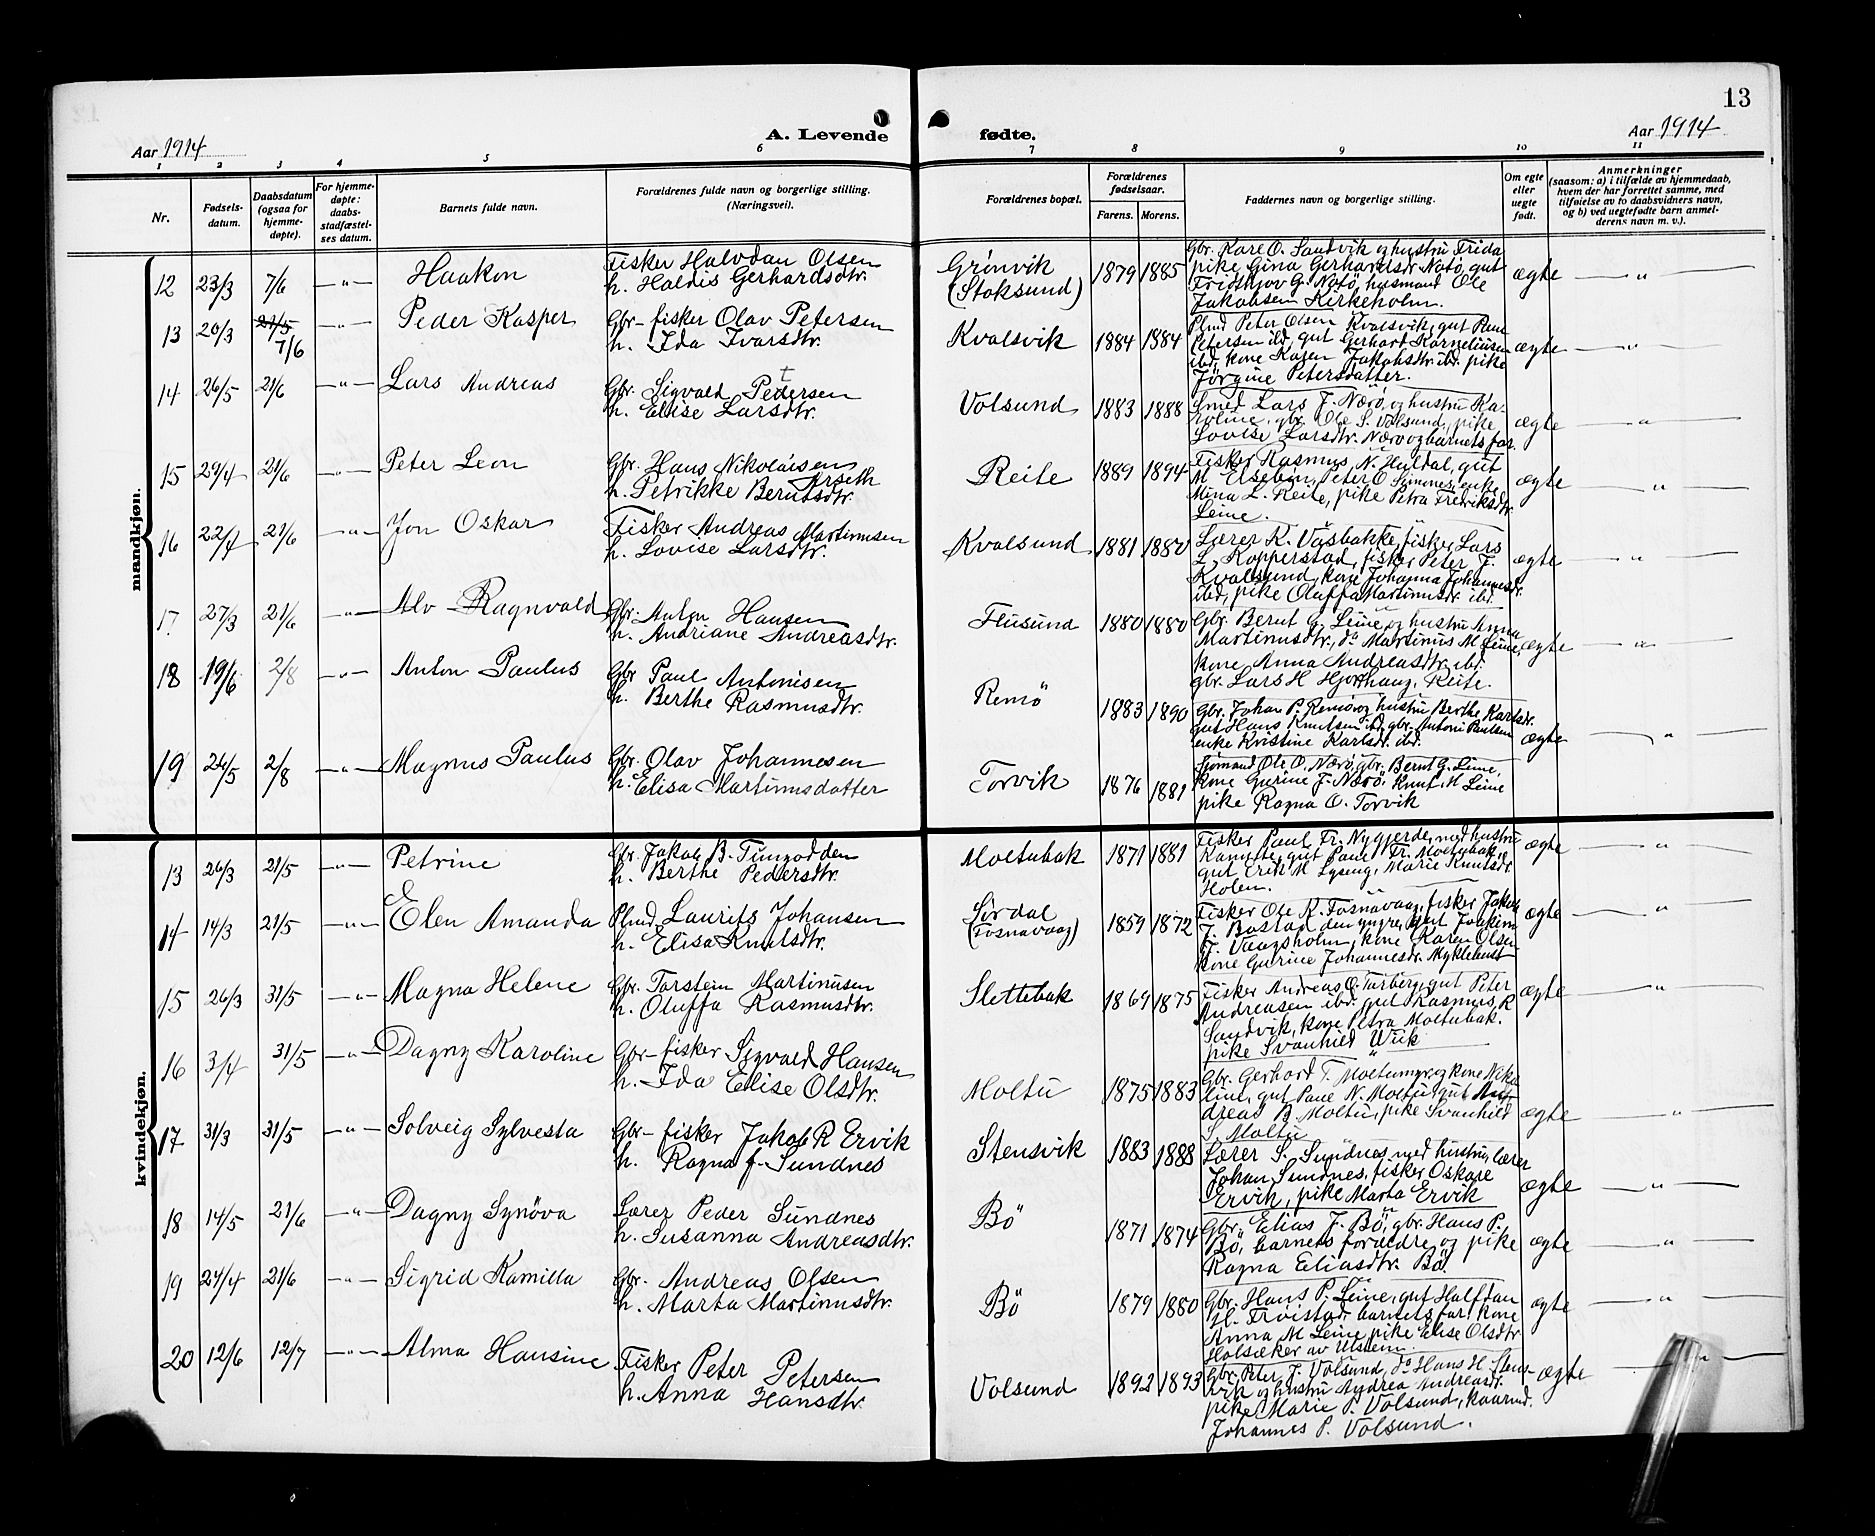 13
A. Levende fødte.
Aar 1914
Aar 1914
1 2 3 4 5 6 7 8 9 10 11
Nr.
Fødsels-
datum.
Daabsdatum
(ogsaa for
hjemme-
døpte).
For hjemme-
døpte:
daabs-
stadfæstel-
ses datum.
Barnets fulde navn.
Forældrenes fulde navn og borgerlige stilling.
(Næringsvei).
Forældrenes bopæl.
Forældrenes
fødselsaar.
Farens. Morens.
Faddernes navn og borgerlige stilling.
Om egte
eller
uegte
født.
Anmerkninger
(saasom: a) i tilfælde av hjemmedaab,
hvem der har forrettet samme, med
tilføielse av to daabsvidners navn,
og b) ved uegtefødte barn anmel-
derens navn m. v.).
mandkjøn.
12 23/3 7/6 —"— Haakon
Fisker Halvdan Olsen
h. Haldis Gerhardsdtr.
Grönvik
(Stoksund)
1879 1885
Gbr. Kare O. Sandvik og hustru Frida
pike Gina Gerhardsdtr. Notö, gut
Fridthjov G. Notö, husmand Ole
Jakobsen Kirkeholm.
ægte —"—
13 20/3 21/5 7/6 —"— Peder Kasper
Gbr-fisker Olav Petersen
h. Ida Ivarsdtr.
Kvalsvik
1884 1884
Plmd Peter Olsen Kvalsvik, gut Paul
Petersen ibd, gut Gerhard Korneliussen
ibd, kone Karen Jakobsdtr. ibd. pike
Jörgine Petersdatter.
ægte —"—
14 26/5 21/6 —"— Lars Andreas
Gbr. Sigvald Pedersen
t
h. Elise Larsdtr.
Volsund
1883 1888
Smed Lars J. Nærö, og hustru Ka-
roline, gbr. Ole S. Volsund, pike
Lovise Larsdtr. Nærö og barnets far.
ægte —"—
15 29/4 21/6 —"— Peter Leon
Gbr. Hans Nikolaisen
Arseth
h. Petrikke Berntsdtr.
Reite
1889 1894
Fisker Rasmus N. Huldal, gut
M. Elsebön, Peter O. Simnes, enke
Mina L. Reite, pike Petra Fredriksdtr.
Leine.
ægte —"—
16 22/4 21/6 —"— Jon Oskar
Fisker Andreas Martinusen
h. Lovise Larsdtr.
Kvalsund
1881 1880
Lærer K. Vaasbakke, fisker Lars
L. Kopperstad, fisker Peter J.
Kvalsund, kone Johanna Johannesdr.
ibd, pike Oluffa Martinusdtr. ibd.
ægte —"—
17 27/3 21/6 —"— Alv Ragnvald
Gbr. Anton Hansen
h. Andriane Andreasdtr.
Flusund
1880 1880
Gbr. Bernt G. Leine, og hustru Anna
Martinusdtr., do Martinus M Leine,
kone Anna Andreasdtr. ibd.
gbr. Lars H Hjorthaug, Reite.
ægte —"—
18 19/6 2/8 —"— Anton Paulus
Gbr Paul Antonisen
h. Berthe Rasmusdtr.
Remö
1883 1890
Gbr. Johan P. Remö og hustru Berthe Karlsdr.
gut Hans Knutsen ibd, gbr. Antoni Paulsen
enke Kristine Karlsdr. ibd.
ægte —"—
19 24/5 2/8 —"— Magnus Paulus
Gbr. Olav Johannesen
h. Elisa Martinusdatter
Torvik
1876 1881
Sjömand Ole O. Nærö, gbr. Bernt G. Leine,
kone Gurine J. Nærö, Knut M Leine
pike Ragna O. Torvik
kvindekjøn.
13 26/3 21/5 —"— Petrine
Gbr. Jakob B. Tungodden
h. Berthe Pedersdtr.
Moltubak
1871 1881
Fisker Paul Fr. Nygjerde, med hustru
Kanutte, gut Paul Fr. Moltubak,
gut Erik M Lyseng, Marie Knutsdr.
Holen.
ægte —"—
14 14/3 21/5 —"— Elen Amanda
Plmd Laurits Johansen
h. Elisa Knutsdtr.
Sördal
(Fosnavaag)
1859 1872
Fisker Ole K. Fosnavaag, fisker Jakob
J. Bostad den yngre, gut Joakim
J. Vaagsholm, kone Karen Olsen
kone Gurine Johannesdr. Myklebust
ægte —"—
15 26/3 31/5 —"— Magna Helene
Gbr. Torstein Martinusen
h. Oluffa Rasmusdtr.
Slettebak
1869 1875
Fisker Andreas O. Tarberg, gut Peter
Andreasen ibd. gut Rasmus R
Sandvik, kone Petra Moltubak.
pike Svanhild Wiik
ægte —"—
16 3/4 31/5 —"— Dagny Karoline
Gbr-fisker Sigvald Hansen
h. Ida Elise Olsdtr.
Moltu
1875 1883
Gbr. Gerhard T. Moltumyr og kone Niko
line, gut Paul N. Moltu, gut An
dreas B. Moltu, pike Svanhild
S. Moltu
ægte —"—
17 31/3 31/5 —"— Solveig Sylvesta
Gbr-fisker Jakob R Ervik
h. Ragna J. Sundnes
Stensvik
1883 1888
Lærer S. Sundnes med hustru, lærer
Johan Sundnes, fisker Oskare
Ervik, pike Marta Ervik
ægte —"—
18 14/5 21/6 —"— Dagny Synöva
Lærer Peder Sundnes
h. Susanna Andreasdtr.
Bö
1871 1874
Gbr. Elias J. Bö, gbr. Hans P.
Bö, barnets foreldre og pike
Ragna Eliasdtr. Bö.
ægte —"—
19 24/4 21/6 —"— Sigrid Kamilla
Gbr. Andreas Olsen
h. Marta Martinusdtr.
Bö
1879 1880
Gbr. Hans P. Leine, gut Halfdan
H. Froistad, barnets far, kone
Anna M Leine, pike Elise Olsdtr
Holsæker av Ulstein.
ægte —"—
20 12/6 12/7 —"— Alma Hansine
Fisker Peter Petersen
h. Anna Hansdtr.
Volsund
1892 1893
Gbr. Peter J. Volsund, do Hans H Stens-
vik og hustru Andrea Andreasdr.
pike Marie P. Volsund,
Johannes P. Volsund.
ægte —"—